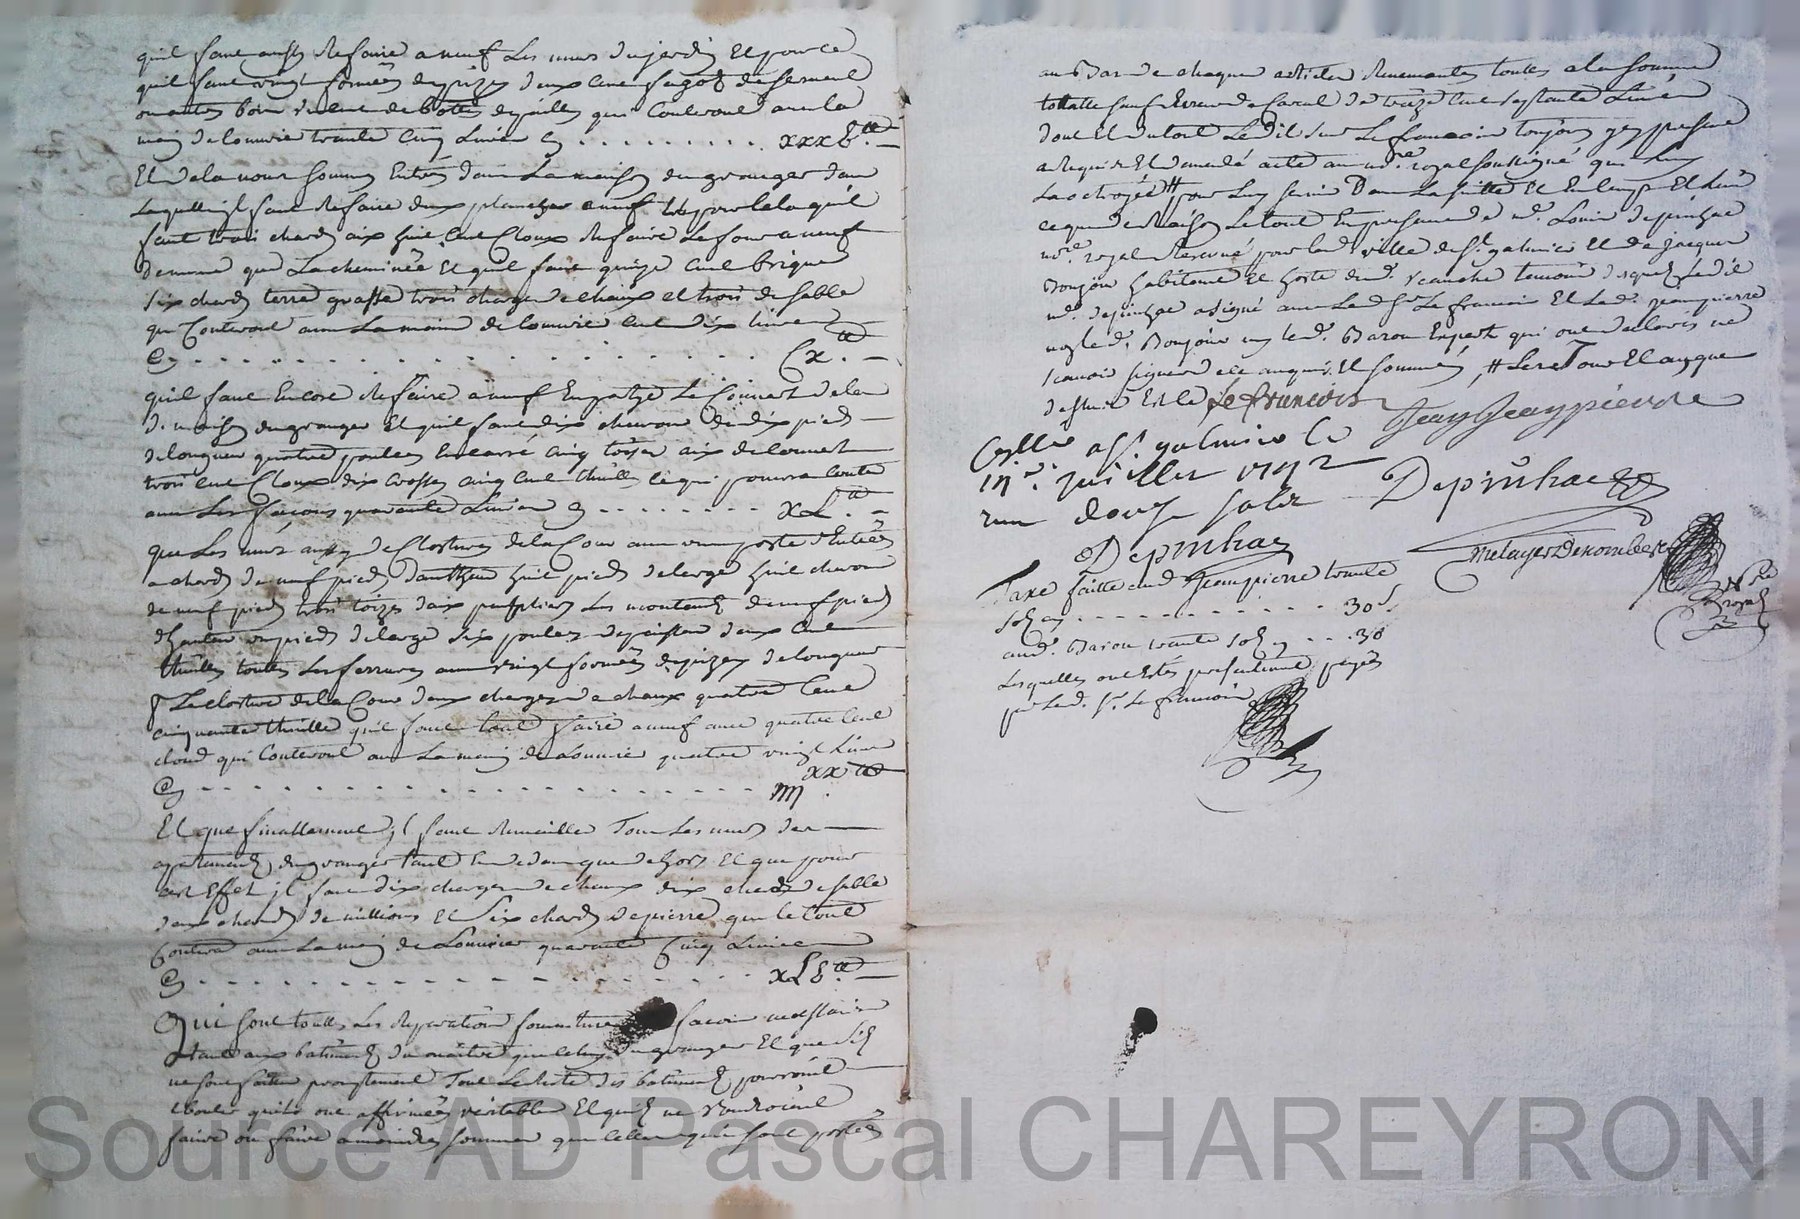 quil faut aussy refaire a neuf les murs du jardin Et pour ce
quil faut vingt fornées de pizey deux cent fagots de serment
bois cent de bottes de paille qui Couteront avec la
main de louvrie trante Cinq Livres Cy . . . . . . . . . xxxv.tt
Et de la nous sommes Entrés dans La maison du granger dans
Laquelle il faut Refaire deux planchers a neuf pour lela quil
faut trois chards aix huit Cent Cloux Refaire Le four a neuf
de meme que La cheminée Et quil faut quinze Cent briques
six chards terre grasse trois charges de chaux et trois de sable
qui Couteront avec La main de louvrie cent dix livres
Cy . . . . . . . . . . . . . . . . . . Cx.tt
quil faut Encore Refaire a neuf le Couvert de la
d. maison du granger Et quil faut dix chevrons de dix pieds
de longueur quatre poulles En carré Cinq toizes aix de Couvert
trois cent Cloux dix crosses Cinq Cent thuilles ce qui pourra Couter
avec Les façons quarante Livres Cy . . . . . . . . xL.tt
que Les murs aussy de Clostures de la Cour avec une porte d'Entrée
a chards de neuf pieds d'autheur huit pieds de large huit chevrons
de neuf pieds trois toizes daix Les montants de neuf pieds
d'hauteur un pied de large six poules de deux Cent
thuilles touttes Les ferrures avec vingt fornées de pizey de longueur
p. La closture de la Cour deux charges de chaux quatre Cent
cinquante thuille quil faut tout faire a neuf avec quatre Cent
cloud qui Couteront avec La main de Louvrie quatre vingt Livres
Cy . . . . . . . . . . . . . . . . . . IIII xx.tt
Et que finallement il faut Remailler Tous Les murs des
apartements du granger tant En dedans que dehors Et que pour
cet Effet il faut dix charges de chaux dix chards de sable
deux chards de millions Et Six chards de pierre que le tout
Coutera avec La main de Louvrier quarante Cinq Livres
Cy . . . . . . . . . . . . . . . . . . xLv.tt
Qui sont touttes Les Reparations a faire necessaires
tant aux batiments du maitre que celuy du granger Et que Sils
ne sont faittes promptement Tout Le Reste des batiments pourroint
ebouler quils ont affirmées véritables Et quils ne voudroint
faire ou faire a moindres sommes que celles qui sont portées
au Bas de chaque article Revenantes touttes a la Somme
tottalle sauf Erreur de Calcul de treize Cent septante Livres
dont Et du tout Le dit sieur Lefrancois toujours present
a Requis Et demandé acte au no.re royal soussigné qui luy
La octroyé # pour Luy servir Dans La suitte Et En temps Et Lieu
ce que de Raison Le tout En presence de m.e Louis depinhac
no.re royal Reservé pour lad. ville de S.t galmier Et de Jacques
Bonjour habitant Et hoste dud. veauche temoins desquels Ledit
m.e depinhac a signé avec Led. S.r Lefrancois Et Led. Jeanpierre
non led. Bonjour ny led. Baron Expert qui ont declarés ne
scavoir signer de ce enquis Et sommés, # Le retour Et au que
Lefrancois Jean Jeanpierre
Collé a S.t galmier le
juillet 1742
reçu douze sols Depinhac
Depinhac
metayer Denombret
Taxe faitte aud. Jeanpierre trante
sols cy . . . . . . . . . . 30 s.
aud. Baron trante sols cy . . . 30
Lesquelles ont Estés presentement payés
par Led. S.r Lefrancois
N.re
royal
Source AD Pascal CHAREYRON